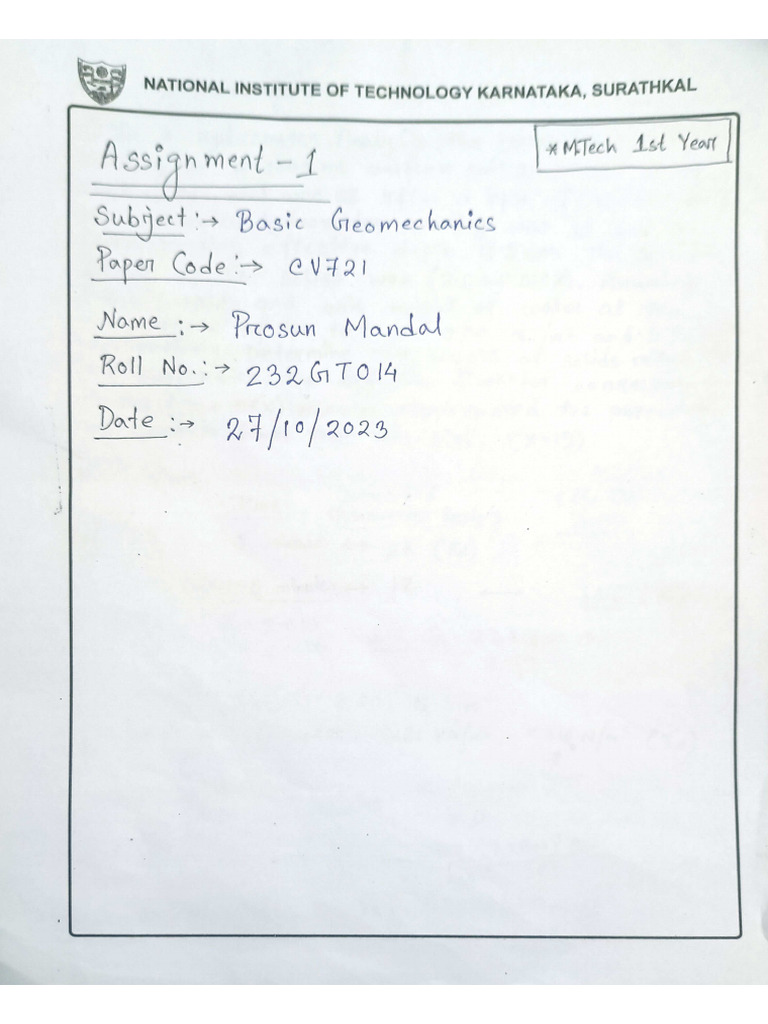 NATIONAL INSTITUTE OF TECHNOLOGY KARNATAKA, SURATHKAL
* M.Tech 1st Year
Assignment - 1
Subject :→ Basic Geomechanics
Paper Code :→ CV721
Name :→ Prosun Mandal
Roll No. :→ 232GT014
Date :→ 27/10/2023